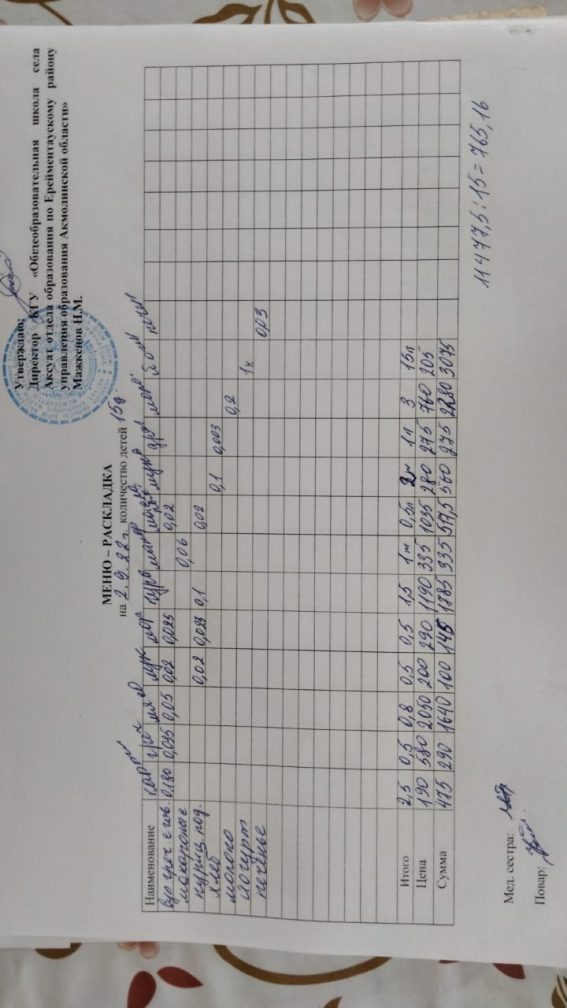 Утверждаю:
Директор КГУ «Общеобразовательная школа села
Аксуат отдела образования по Ерейментаускому району
управления образования Акмолинской области»
Мажкенов Н.М.
МЕНЮ – РАСКЛАДКА
на 2.9.22г. количество детей 15д
Наименование лук мор кура
Суп греч с гов. 0,180 0,035 0,05 0,02 0,025 0,02
макароны 0,06
куриц под. 0,02 0,025 0,1 0,02
хлеб 0,1 0,003
молоко 0,2
йогурт 1х
печенье 0,03
Итого 2,5 0,5 0,8 0,5 0,5 1,5 1к 0,5л 2к 1л 3 15п
Цена 190 580 2050 200 290 1190 335 1035 280 275 760 205
Сумма 475 290 1640 100 145 1785 335 517,5 560 275 2280 3075
11477,5 : 15 = 765,16
Мед. сестра:
Повар: